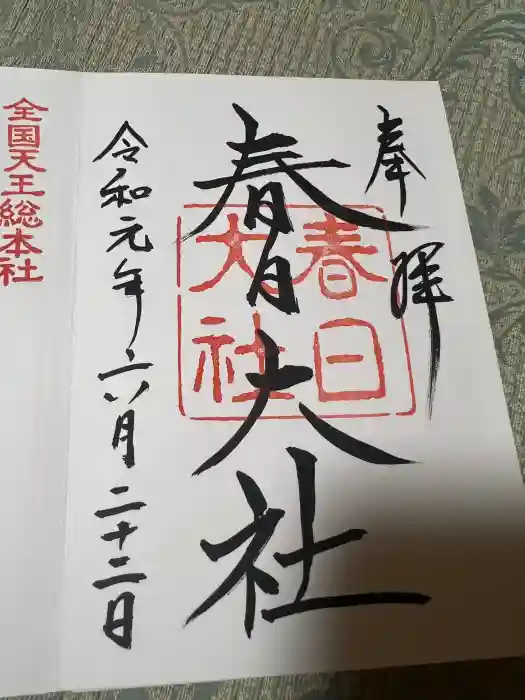 奉拝
春日大社
春日
大社
令和元年六月二十二日
全国天王総本社